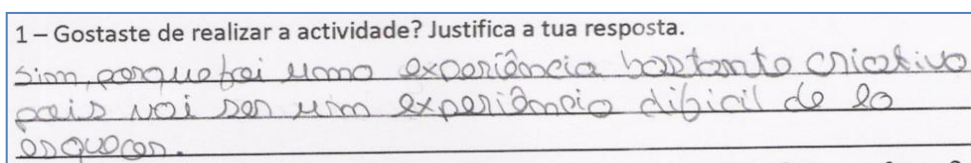 1 – Gostaste de realizar a actividade? Justifica a tua resposta.
Sim, porque foi uma experiência bastante criativa
pois vai ser um experiência dificil de la
esquecer.